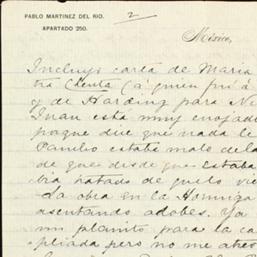 PABLO MARTINEZ DEL RIO.
APARTADO 250.
2
México,
Incluyo carta de Maria
tra Chenta (á quien fui á
y de Harding para Ne
Juan está muy enojado
porque dice que nada le
Pancho estaba malo del a
de que desde que Estaba
bia tratado de que lo vie
La obra en la Hormiga
asentando adobes. Ya
un planito para la ca
pliada pero no me atrev